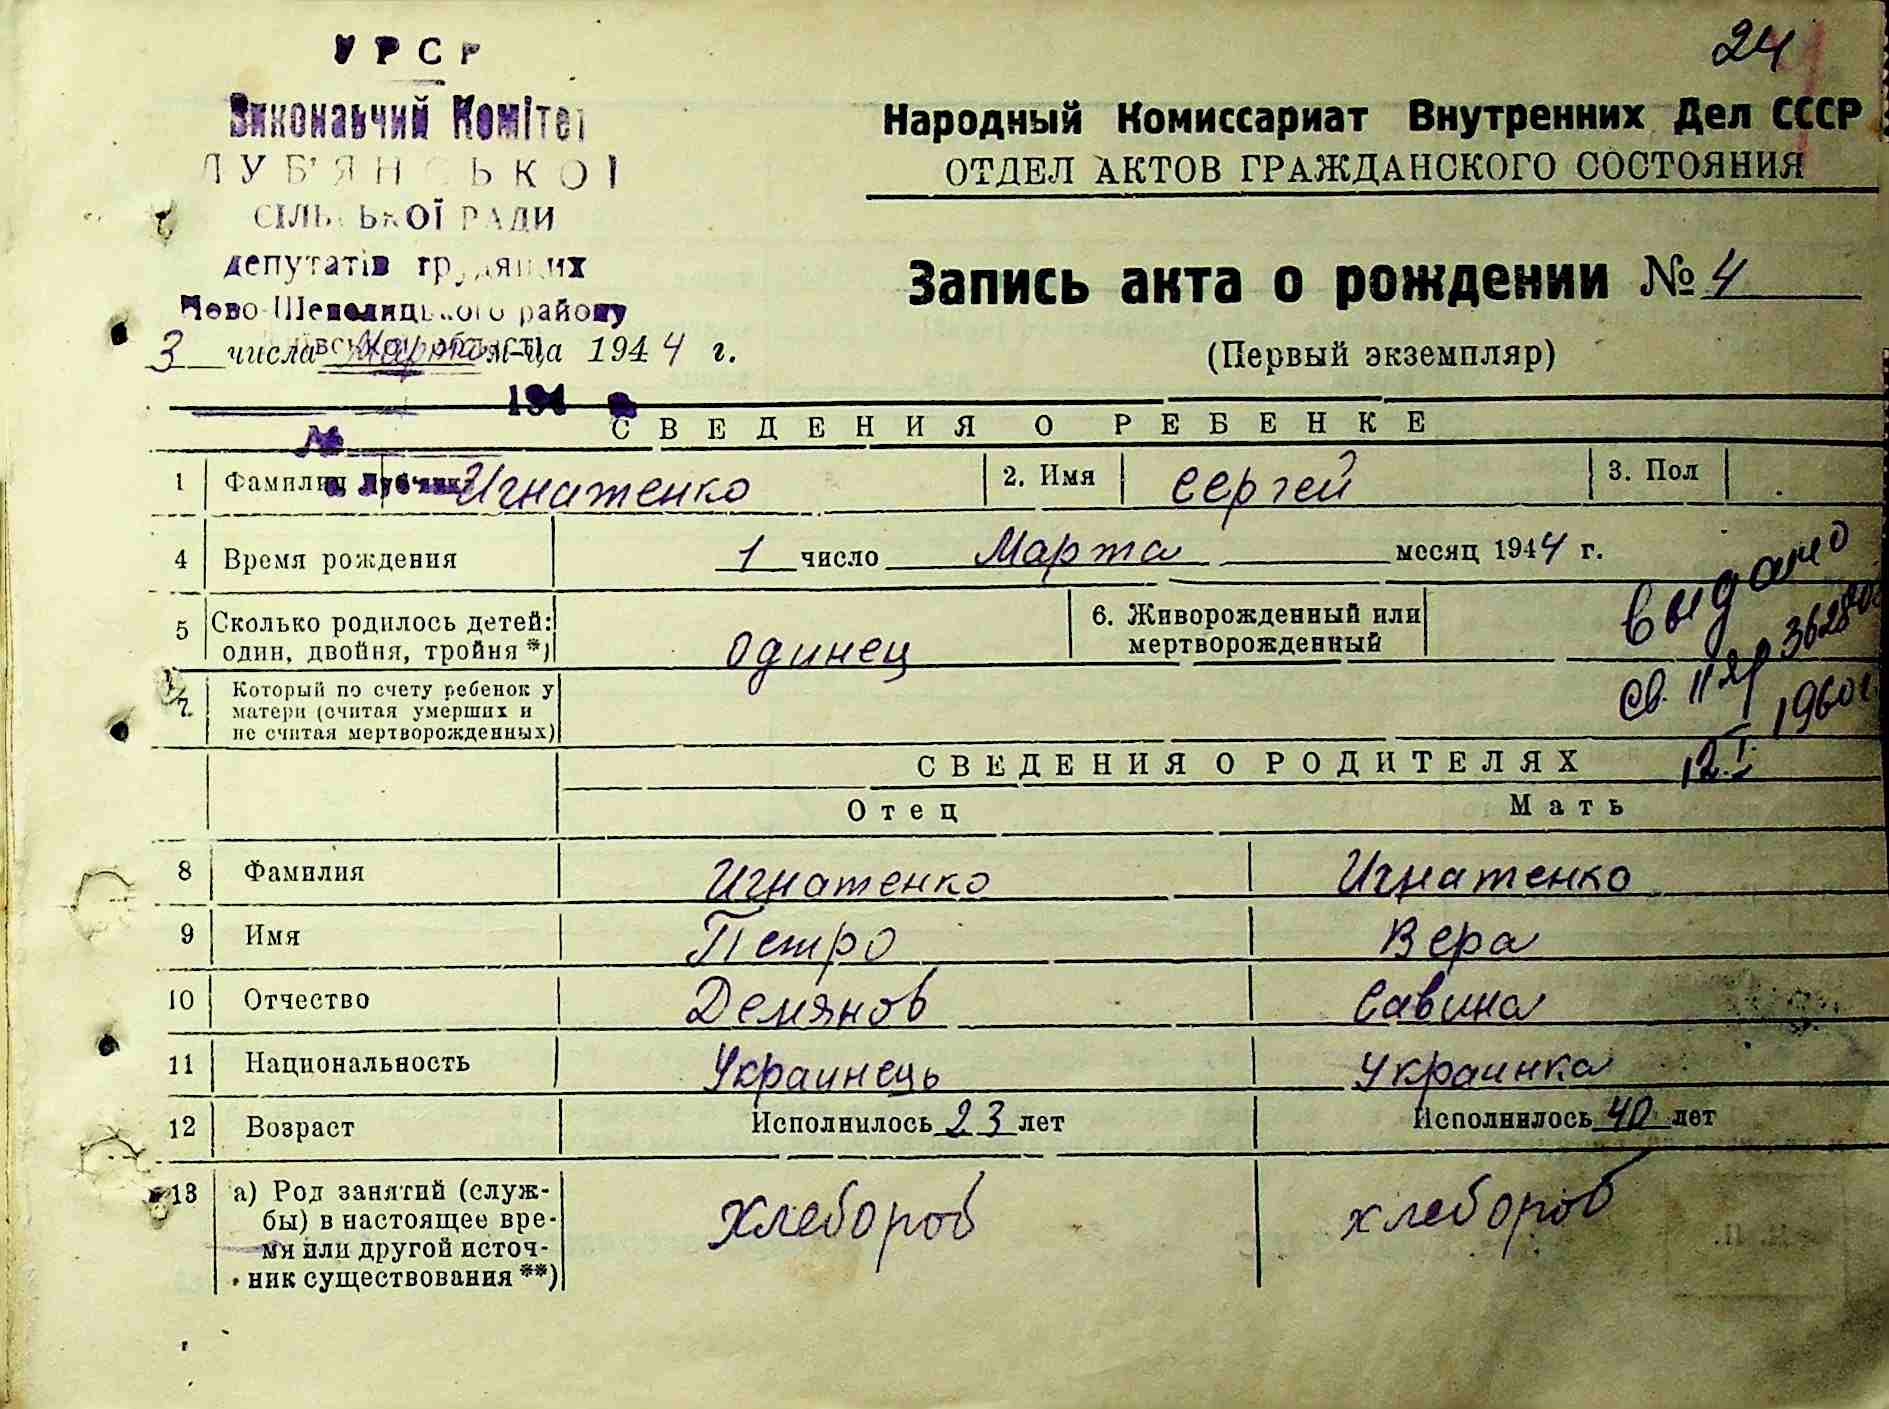 24
УРСР
Виконавчий Комітет
ЛУБ'ЯНСЬКОЇ
СІЛЬСЬКОЇ РАДИ
депутатів трудящих
Ново-Шепелицького району
3 числа Марта м-ца 1944 г.
194
№
Народный Комиссариат Внутренних Дел СССР
ОТДЕЛ АКТОВ ГРАЖДАНСКОГО СОСТОЯНИЯ
Запись акта о рождении № 4
(Первый экземпляр)
СВЕДЕНИЯ О РЕБЕНКЕ
1 Фамилия Игнатенко 2. Имя Сергей 3. Пол
4 Время рождения 1 число Марта месяц 1944 г.
5 Сколько родилось детей: один, двойня, тройня *) одинец 6. Живорожденный или мертворожденный
7. Который по счету ребенок у
матери (считая умерших и
не считая мертворожденных)
выдано
св. II
12.I. 1960
СВЕДЕНИЯ О РОДИТЕЛЯХ
Отец Мать
8 Фамилия Игнатенко Игнатенко
9 Имя Петро Вера
10 Отчество Демянов Савина
11 Национальность Украинець Украинка
12 Возраст Исполнилось 23 лет Исполнилось 40 лет
13 а) Род занятий (служ-
бы) в настоящее вре-
мя или другой источ-
ник существования **)
хлебороб хлебороб